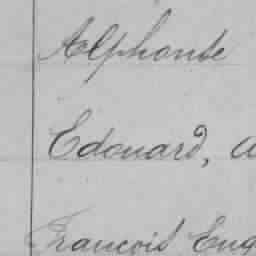 Alphonse
Edouard, A
François Eug